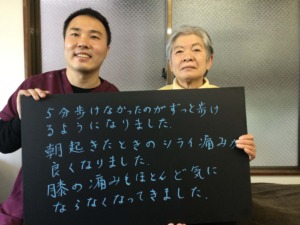 5分歩けなかったのがずっと歩け
るようになりました。
朝起きたときのシライ痛みが
良くなりました。
膝の痛みもほとんど気に
ならなくなってきました。